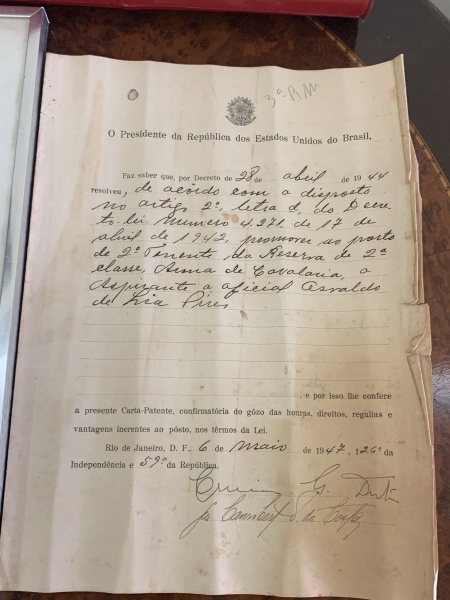 3ª RM
O Presidente da República dos Estados Unidos do Brasil,
Faz saber que, por Decreto de 28 de abril de 1944
resolveu, de acôrdo com o disposto
no artigo 2º, letra d, do Decre
to-lei número 4.271, de 17 de
abril de 1942, promover ao posto
de 2º Tenente da Reserva de 2ª
classe, Arma de Cavalaria, o
Aspirante a oficial Osvaldo
de Lia Pires
, e por isso lhe confere
a presente Carta-Patente, confirmatória do gôzo das honras, direitos, regalias e
vantagens inerentes ao pôsto, nos têrmos da Lei.
Rio de Janeiro, D. F., 6 de maio de 1947, 126º da
Independência e 59º da República.
G. Dutra
da Costa